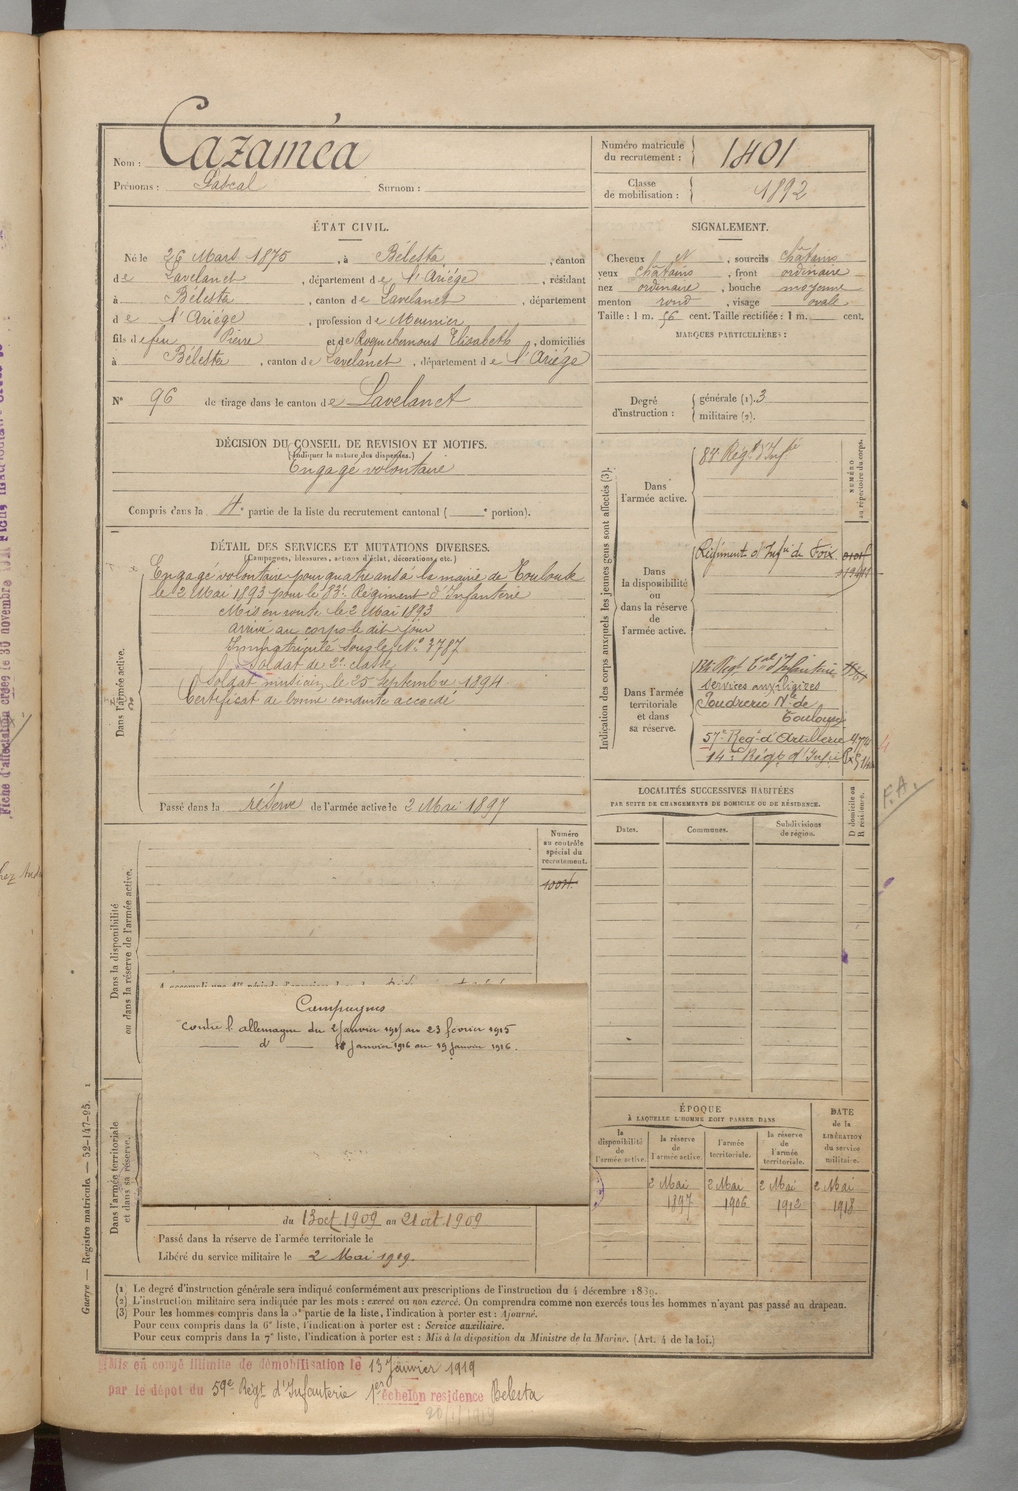 Nom : Cazaméa
Prénoms : Pascal Surnom :
Numéro matricule du recrutement : 1401
Classe de mobilisation : 1892
ÉTAT CIVIL.
Né le 26 Mars 1875, à Bélesta, canton
de Lavelanet, département de l'Ariége, résidant
à Bélesta, canton de Lavelanet, département
de l'Ariége, profession de Meunier
fils de feu Pierre et de Roquebernous Elisabeth, domiciliés
à Bélesta, canton de Lavelanet, département de l'Ariége
N° 96 de tirage dans le canton de Lavelanet
SIGNALEMENT.
Cheveux N, sourcils châtains
yeux châtains, front ordinaire
nez ordinaire, bouche moyenne
menton rond, visage ovale
Taille : 1 m. 56 cent. Taille rectifiée : 1 m. cent.
MARQUES PARTICULIÈRES :
Degré d'instruction : générale (1). 3
militaire (2).
DÉCISION DU CONSEIL DE REVISION ET MOTIFS.
(Indiquer la nature des dispenses.)
Engagé volontaire
Compris dans la 4e partie de la liste du recrutement cantonal ( e portion).
DÉTAIL DES SERVICES ET MUTATIONS DIVERSES.
(Campagnes, blessures, actions d'éclat, décorations, etc.)
Dans l'armée active.
Engagé volontaire pour quatre ans à la mairie de Toulouse
le 2 Mai 1893 pour le 83e Régiment d'Infanterie
Mis en route le 2 Mai 1893
arrivé au corps le dit jour
Immatriculé sous le N° 3787
Soldat de 2e classe
Soldat musicien le 25 Septembre 1894
Certificat de bonne conduite accordé
Passé dans la réserve de l'armée active le 2 Mai 1897
Indication des corps auxquels les jeunes gens sont affectés (3).
NUMÉRO au répertoire du corps.
Dans l'armée active.
83e Régt d'Infie
Dans la disponibilité ou dans la réserve de l'armée active.
Régiment d'Infie de Foix
Dans l'armée territoriale et dans sa réserve.
Services auxiliaires
Poudrerie Nle de
Toulouse
57e Régt d'Artillerie
14e Régt d'Infie
LOCALITÉS SUCCESSIVES HABITÉES
PAR SUITE DE CHANGEMENTS DE DOMICILE OU DE RÉSIDENCE.
D domicile ou R résidence.
Dates. Communes. Subdivisions de région.
F.A.
Numéro au contrôle spécial du recrutement.
Dans la disponibilité ou dans la réserve de l'armée active.
Campagnes
contre l'allemagne du 2 janvier 1915 au 23 février 1915
d° 18 janvier 1916 au 19 janvier 1916.
Dans l'armée territoriale et dans sa réserve.
du 13 oct 1909 au 21 oct 1909
Passé dans la réserve de l'armée territoriale le
Libéré du service militaire le 2 Mai 1909.
ÉPOQUE
À LAQUELLE L'HOMME DOIT PASSER DANS
la disponibilité de l'armée active.
la réserve de l'armée active.
l'armée territoriale.
la réserve de l'armée territoriale.
DATE de la LIBÉRATION du service militaire.
2 Mai 1897
2 Mai 1906
2 Mai 1912
2 Mai 1918
Guerre — Registre matricule. — 52-147-95.
(1) Le degré d'instruction générale sera indiqué conformément aux prescriptions de l'instruction du 4 décembre 1889.
(2) L'instruction militaire sera indiquée par les mots : exercé ou non exercé. On comprendra comme non exercés tous les hommes n'ayant pas passé au drapeau.
(3) Pour les hommes compris dans la 5e partie de la liste, l'indication à porter est : Ajourné.
Pour ceux compris dans la 6e liste, l'indication à porter est : Service auxiliaire.
Pour ceux compris dans la 7e liste, l'indication à porter est : Mis à la disposition du Ministre de la Marine. (Art. 4 de la loi.)
Mis en congé illimité de démobilisation le 13 Janvier 1919
par le dépôt du 59e Régt d'Infanterie 1er échelon résidence Bélesta